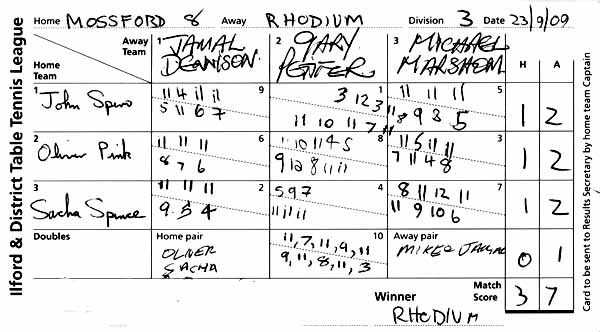 Ilford & District Table Tennis League
Home MOSSFORD 8 Away RHODIUM Division 3 Date 23/9/09
Away Team
Home Team
1 JAMAL DENNISON
2 GARY
3 MICHAEL
H A
1 John Spiro
9
11 4 11 11
5 11 6 7
1
3 12 3 11
11 10 11 7 11
5
11 11 11
8 9 8 5
1 2
2 Oliver Pink
6
11 11 11
8 7 6
8
11 10 11 4 5
9 12 8 11 11
3
11 5 11 11
7 11 4 8
1 2
3 Sacha Spence
2
11 11 11
9 5 4
4
5 9 7
11 11 11
7
8 11 12 11
11 9 10 6
1 2
Doubles
Home pair
OLIVER
SACHA
10
11, 7, 11, 9, 11
9, 11, 8, 11, 3
Away pair
MIKE & JAMAL
0 1
Winner
RHODIUM
Match Score
3 7
Card to be sent to Results Secretary by home team Captain